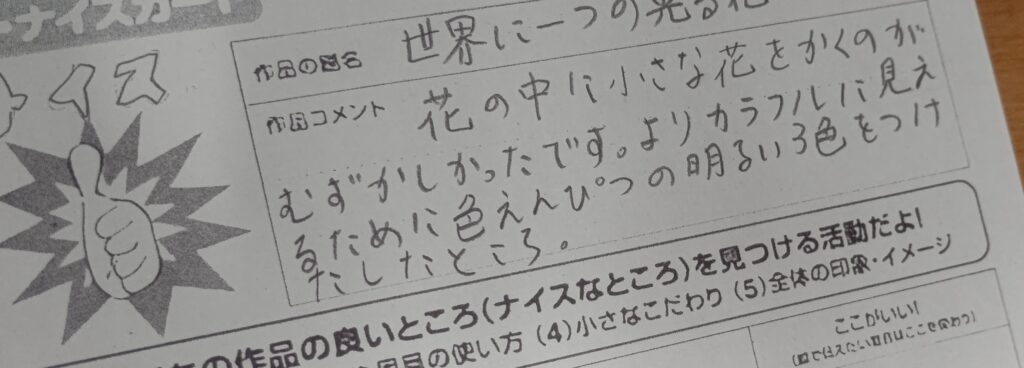 ナイスカード
イス
作品の題名
世界に一つの光る花
作品コメント
花の中に小さな花をかくのが
むずかしかったです。よりカラフルに見え
るために色えんぴつの明るい3色をつけ
たしたところ。
の作品の良いところ(ナイスなところ)を見つける活動だよ!
の使い方 (4)小さなこだわり (5)全体の印象・イメージ
ここがいい!